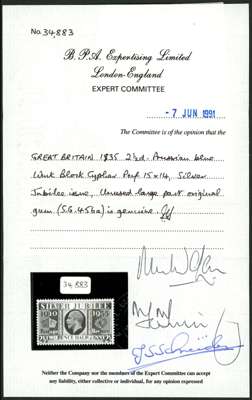 No. 34,883
B.P.A. Expertising Limited
London-England
EXPERT COMMITTEE
-7 JUN 1991
The Committee is of the opinion that the
GREAT BRITAIN 1935 2½d. Prussian blue
Wmk Block Cypher Perf 15x14, Silver
Jubilee issue, Unused large part original
gum (S.G. 456a) is genuine.
34,883
SILVER JUBILEE
1910
1935
2½
HALFPENCE
Neither the Company nor the members of the Expert Committee can accept
any liability, either collective or individual, for any opinion expressed